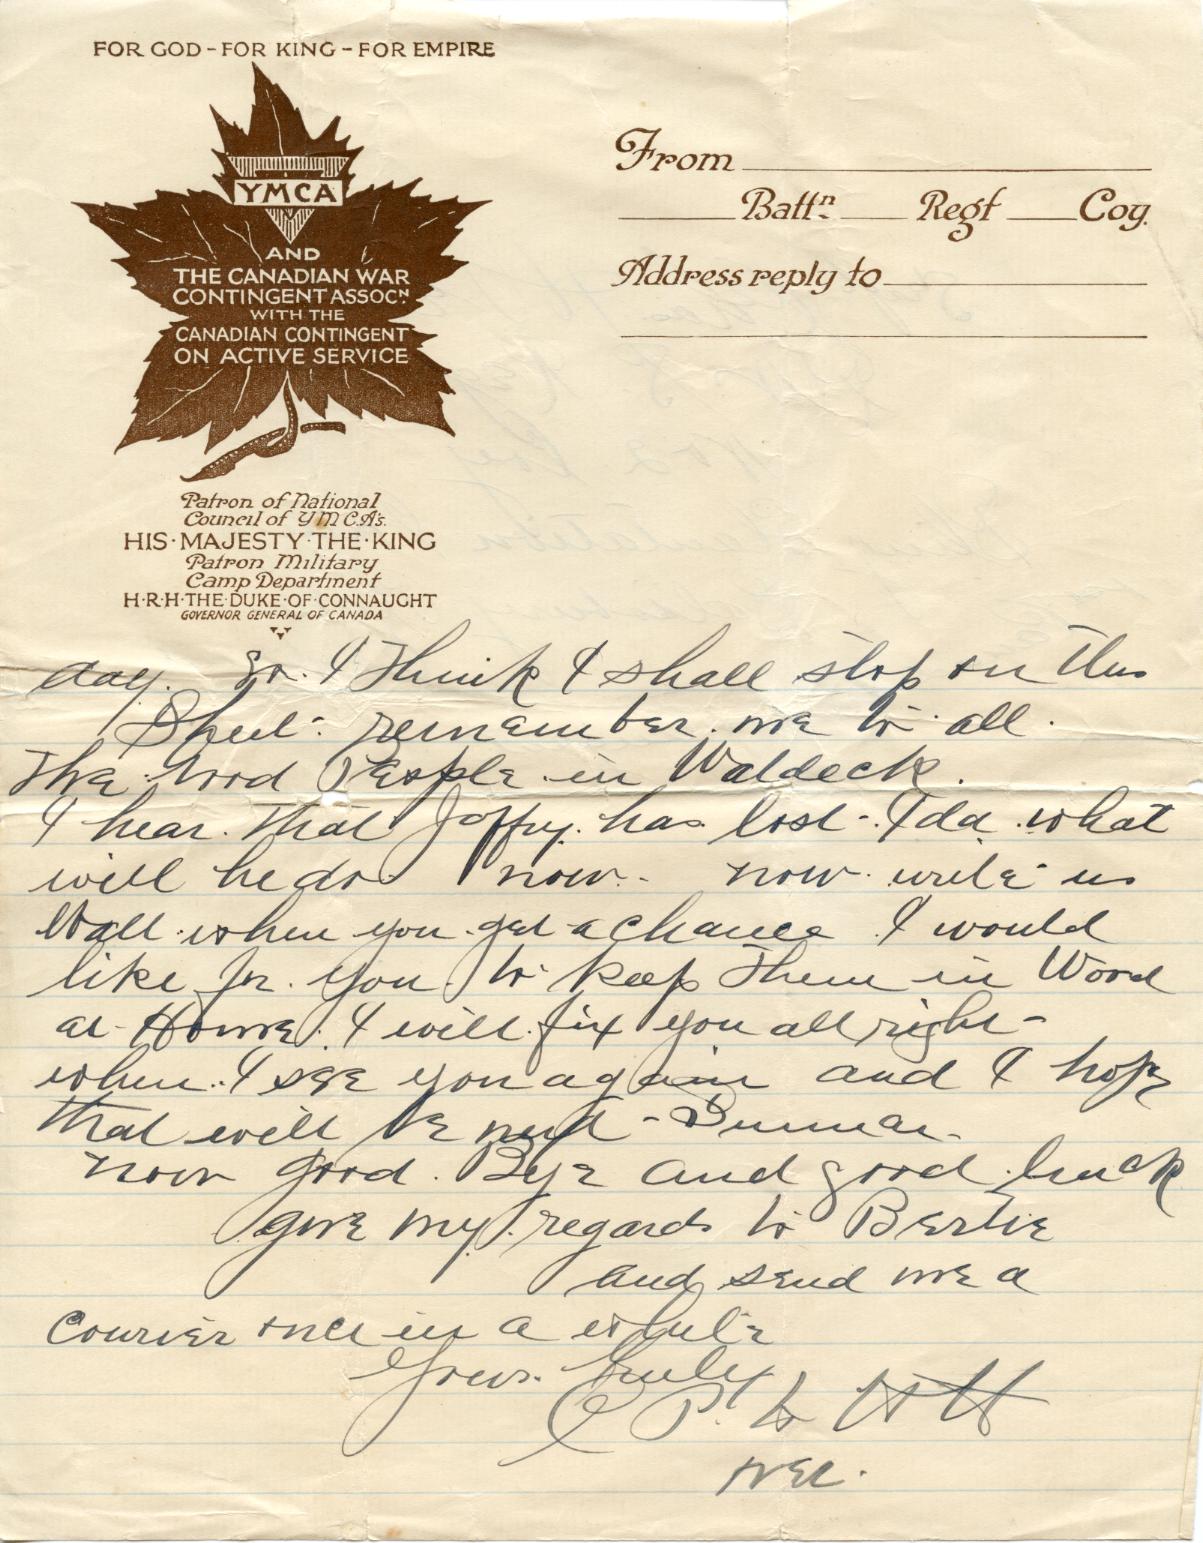 FOR GOD - FOR KING - FOR EMPIRE
YMCA
AND
THE CANADIAN WAR
CONTINGENT ASSOCN
WITH THE
CANADIAN CONTINGENT
ON ACTIVE SERVICE
From
Battn. Regt Coy.
Address reply to
Patron of National
Council of Y.M.C.A's.
HIS·MAJESTY·THE·KING
Patron Military
Camp Department
H·R·H·THE·DUKE·OF·CONNAUGHT
GOVERNOR GENERAL OF CANADA
day. So. I Think I shall stop on this
Sheet. remember. me to all.
The Good People in Waldeck.
I hear. That Joffry. has lost. Ida what
will he do now. now. write us
Wall when you get a chance I would
like for. You to keep Them in Word
at Home. I will fix you all right
when. I see you again and I hope
that will be next Summer.
now good. Bye and good luck
give my regards to Bertie
and send me a
Courier once in a while
Yours. truly
C P.